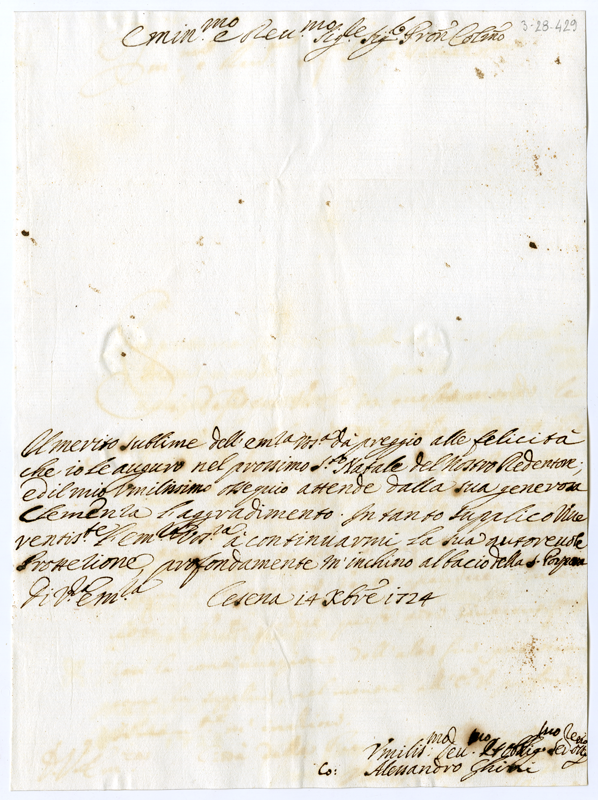 3-28-429
Emin.mo e Reu.mo Sig.re Sig.e Pron' Colmo
Al merito sublime dell'em.a Vos.a dà preggio alle felicità
che io le auguro nel prossimo S.to Natale del Nostro Redentore;
ed il mio Vmilissimo ossequio attende dalla sua generosa
Clemenza l'aggradimento. In tanto supplico Riue
rentis.te l'em.a Vos.a à continuarmi la sua autoreuole
Prottetione, e profondamente m'inchino al bacio della S. Porpora
di V.ra em.a Cesena 14 Xbre 1724
Vmilis.mo Deu.mo et Obblig.mo Ser.re
Co: Alessandro Ghini